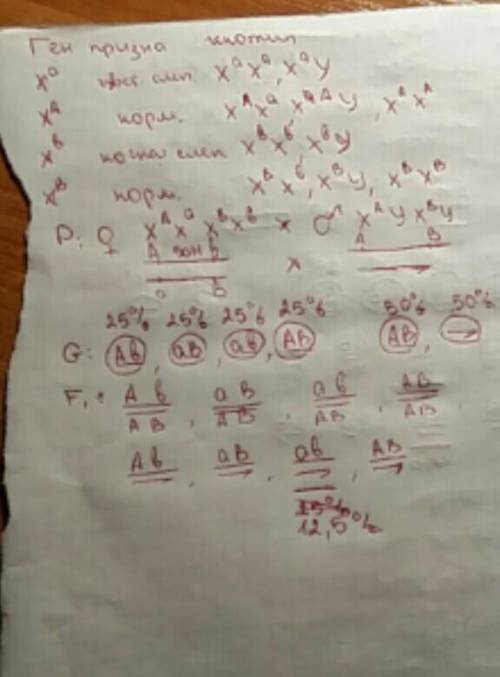 Ген призна генотип
Xᵃ цвет. слеп XᵃXᵃ, Xᵃy
Xᴬ норм. XᴬXᵃ Xᴬy, XᴬXᴬ
Xᵇ ночная слеп XᵇXᵇ, Xᵇy
Xᴮ норм. XᴮXᵇ, Xᴮy, XᴮXᴮ
P: ♀ XᴬXᵃ XᴮXᵇ × ♂ Xᴬy Xᴮy
A 50М b A B
×
a b
25% 25% 25% 25% 50% 50%
G: Ab, aB, ab, AB AB, →
F₁: Ab, aB, ab, AB
AB AB AB AB
Ab, aB, ab, AB
12,5%